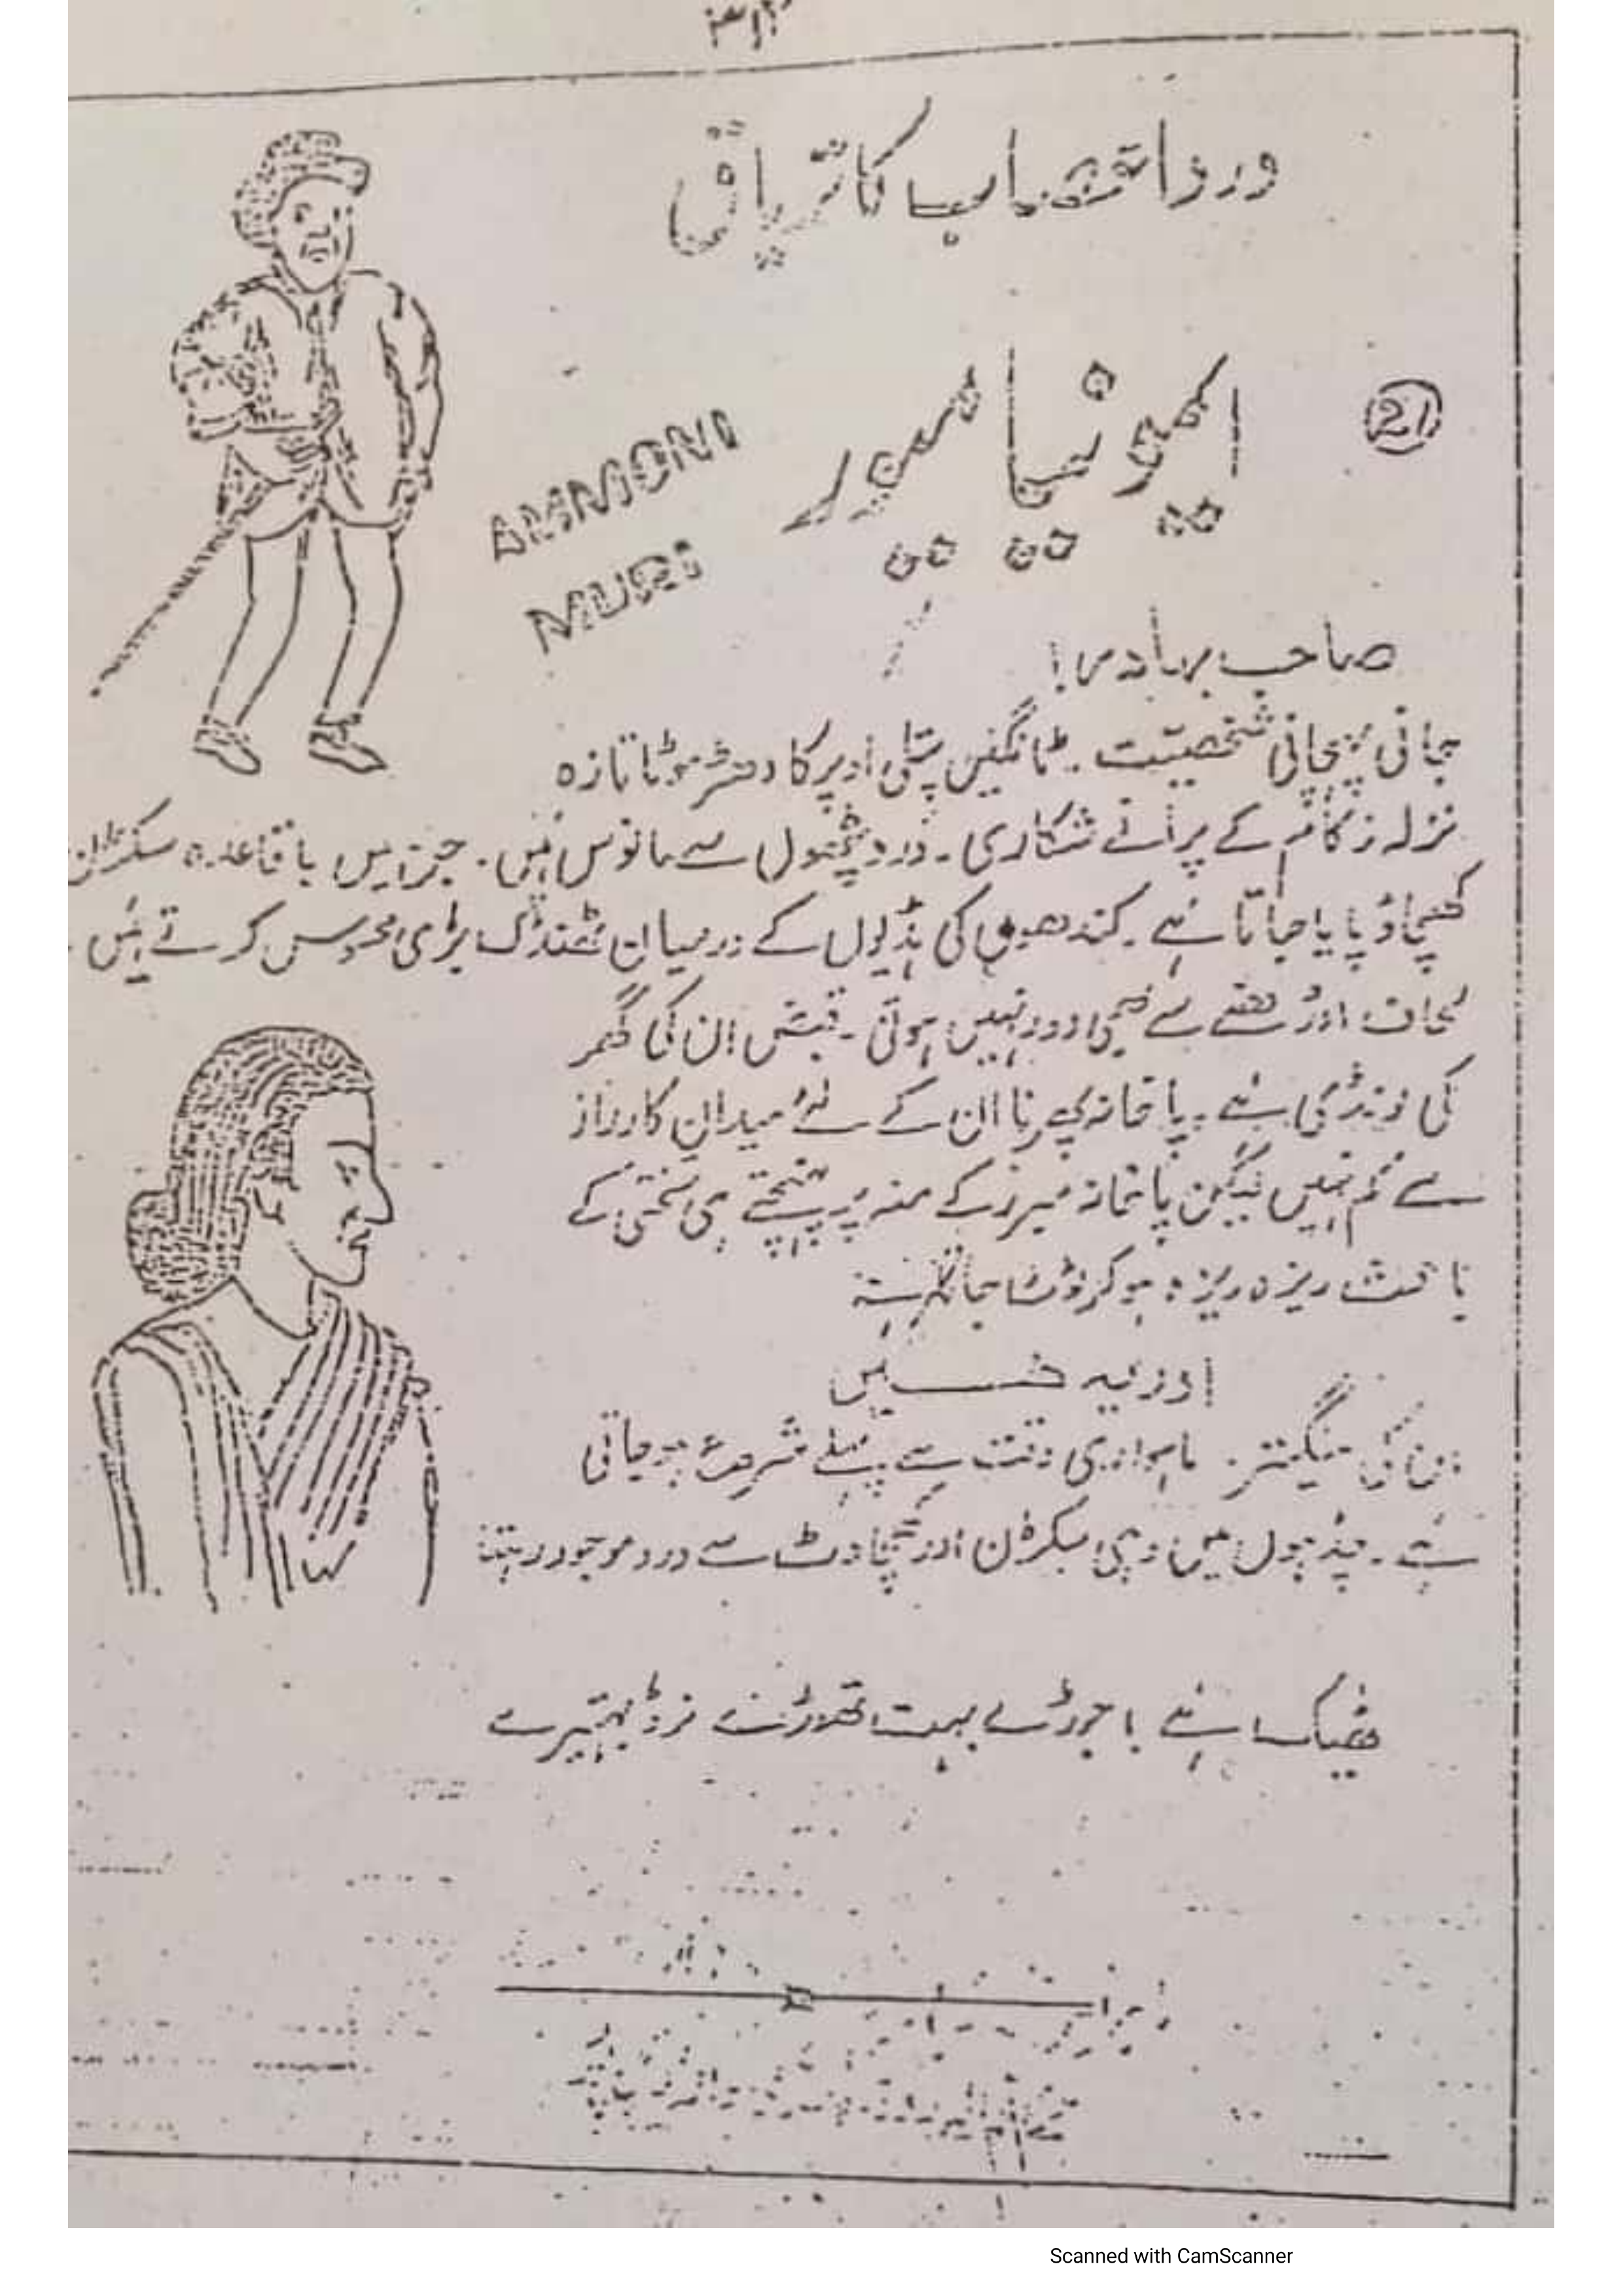 کا تریاق
21
ایمونیا میور
AMMONI
MURI
صاحب بہادر!
جانی پہچانی شخصیت۔ ٹانگیں پتلی اوپر کا دھڑ موٹا تازہ
نزلہ زکام کے پرانے شکاری۔ درد سے مانوس ہیں۔ جن میں باقاعدہ سکڑان
کھنچاؤ پایا جاتا ہے۔ کندھوں کی ہڈیوں کے درمیان ٹھنڈک بڑی محسوس کرتے ہیں۔
لحاف اوڑھنے سے بھی دور نہیں ہوتی۔ قبض ان کی گھر
کی لونڈی ہے۔ پاخانہ پھرنا ان کے لئے میدان کارزار
سے کم نہیں لیکن پاخانہ مبرز کے منہ پر پہنچتے ہی سختی کے
باعث ریزہ ریزہ ہو کر ٹوٹتا جاتا ہے
اور یہ ہیں
ان کی منگیتر۔ ماہواری وقت سے پہلے شروع ہو جاتی
ہے۔ میں وہی سکڑن اور کھچاوٹ سے درد موجود رہتا
بہت تھوڑے بہتیرے
Scanned with CamScanner